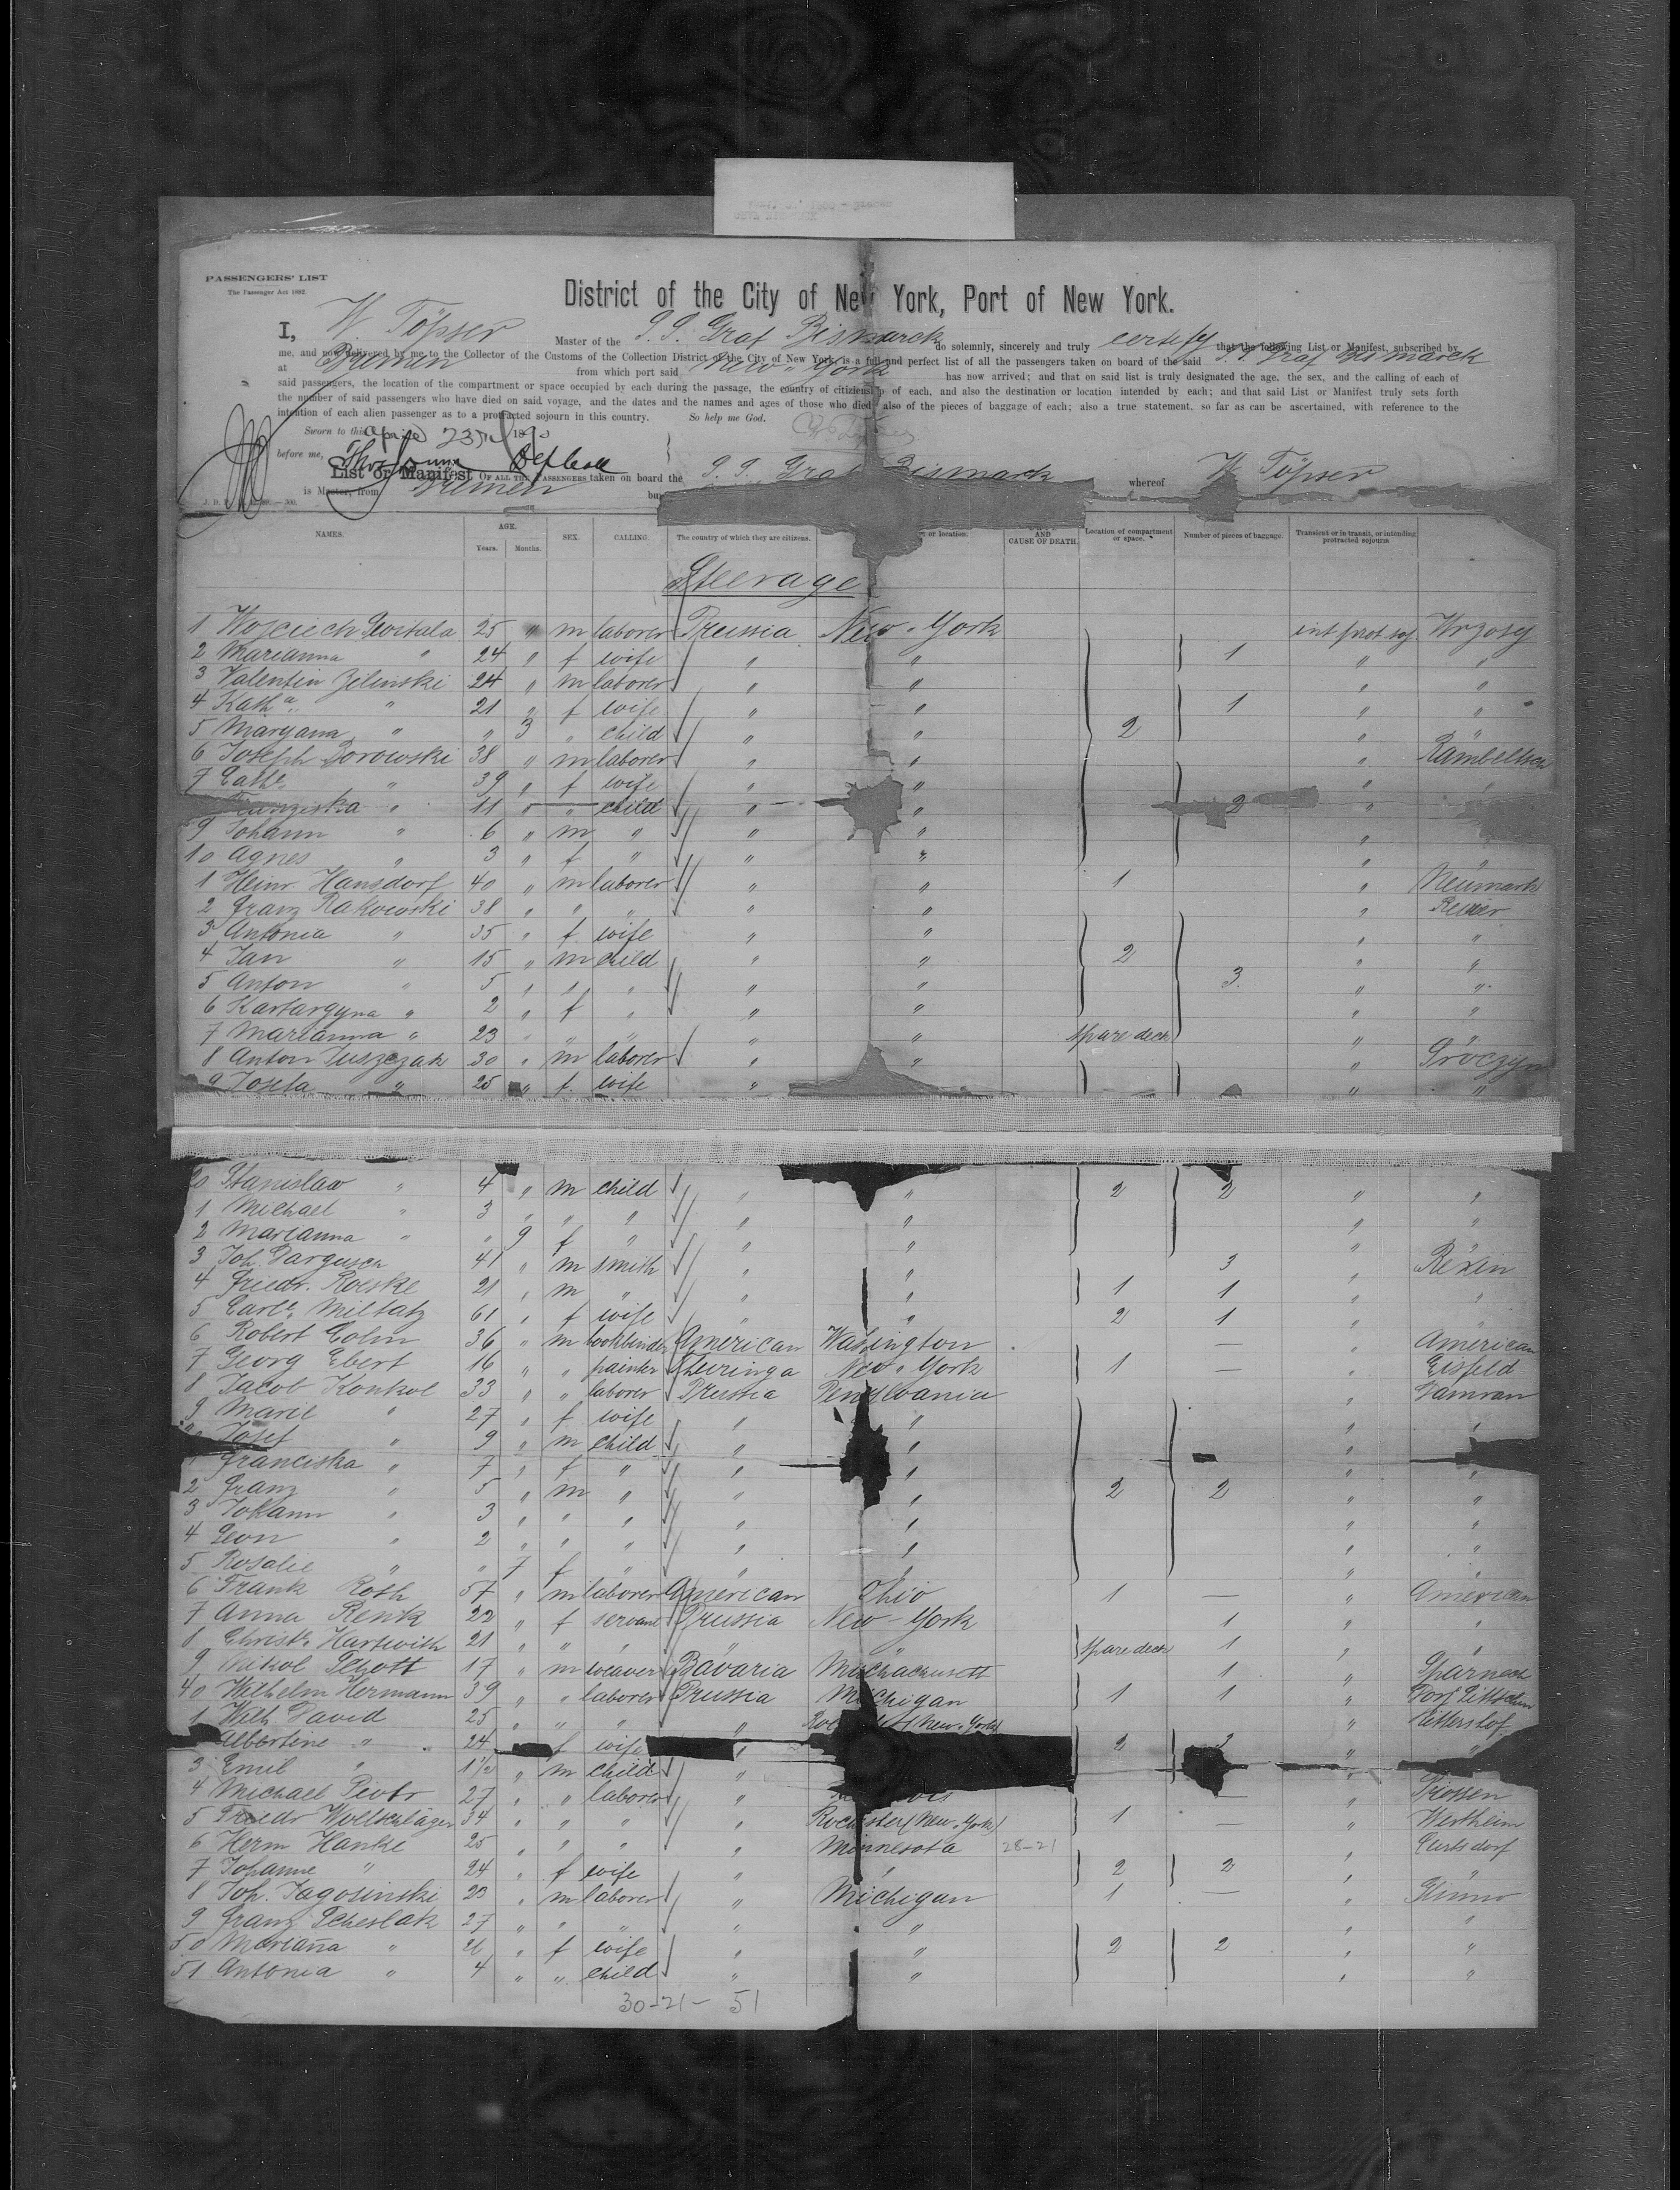 PASSENGERS' LIST
The Passenger Act 1882.
District of the City of New York, Port of New York.
I, W. Töpser Master of the S. S. Graf Bismarck do solemnly, sincerely and truly certify that the following List or Manifest, subscribed by
me, and now delivered by me to the Collector of the Customs of the Collection District of the City of New York, is a full and perfect list of all the passengers taken on board of the said S. S. Graf Bismarck
at Bremen from which port said New-York has now arrived; and that on said list is truly designated the age, the sex, and the calling of each of
said passengers, the location of the compartment or space occupied by each during the passage, the country of citizenship of each, and also the destination or location intended by each; and that said List or Manifest truly sets forth
the number of said passengers who have died on said voyage, and the dates and the names and ages of those who died also of the pieces of baggage of each; also a true statement, so far as can be ascertained, with reference to the
intention of each alien passenger as to a protracted sojourn in this country. So help me God.
Sworn to this April 23rd 1890
before me,
List or Manifest OF ALL THE PASSENGERS taken on board the S. S. Graf Bismarck whereof W Töpser
is Master, from Bremen
NAMES. AGE. Years. Months. SEX. CALLING. The country of which they are citizens. or location. AND CAUSE OF DEATH. Location of compartment or space. Number of pieces of baggage. Transient or in transit, or intending protracted sojourn
Steerage
1 Wojciech 25 " m laborer Prussia New-York int prot soj Wrzosy
2 Marianna " 24 " f wife " " 1 " "
3 Valentin Zilinski 24 " m laborer " " " "
4 Kath " 21 " f wife " " 1 " "
5 Maryana " " 3 " child " " 2 " "
6 Joseph Borowski 38 " m laborer " " " Rambeltsch
7 Cath " 39 " f wife " " " "
Franziska " 11 " " child " " 2 "
9 Johann " 6 " m " " " "
10 Agnes " 3 " f " " " " "
1 Heinr Hansdorf 40 " m laborer " " 1 " Neumark
2 Franz Rakowski 38 " " " " " "
3 Antonia " 35 " f wife " " " "
4 Jan " 15 " m child " " 2 " "
5 Anton " 5 " " " " " 3. " "
6 Kartargyna " 2 " f " " " " "
7 Marianna " 23 " " " " " spare deck " "
8 Anton Juszczak 30 " m laborer " " "
9 Josefa " 25 " f. wife " " "
20 Stanislaw " 4 " m child " " 2 2 " "
1 Michael " 3 " " " " " " "
2 Marianna " " 9 f " " " "
3 Joh. Dargusch 41 " m smith " " 3 " Rexin
4 Friedr. Roeske 21 " m " " " 1 1 " "
5 Carl Miltatz 61 " f wife " " 2 1 "
6 Robert Cohn 36 " m bookbinder American Washington — " American
7 Georg Ebert 16 " " painter Thuringa New-York 1 — " Eisfeld
8 Jacob Konkol 33 " " laborer Prussia Pensylvania " Damran
9 Marie " 27 " f wife " " " "
Josef " 9 " m child " " "
1 Franciska " 7 " f " " " " "
2 Franz " 5 " m " " " 2 2 " "
3 Johann " 3 " " " " " " "
4 Leon " 2 " " " " " " "
5 Rosalie " " 7 f " " " " "
6 Frank Roth 57 " m laborer American Ohio 1 — " American
7 Anna Renk 22 " f servant Prussia New-York 1 " "
8 Christ. Hartwich 21 " " " " " spare deck 1 " "
9 Nikol Schott 17 " m weaver Bavaria 1 " Sparneck
40 Wilhelm Hermann 39 " " laborer Prussia Michigan 1 1 "
1 Wilh David 25 " " " " (New-York) " Rittershof
Albertine " 24 f wife " 2 "
3 Emil " 1 1/2 " m child " "
4 Michael Piotr 27 " " laborer " — "
5 Friedr Wollschläger 34 " " " " Rochester (New-York) 1 — " Wertheim
6 Herm Hanke 25 " " " " Minnesota 28-21 " Curtsdorf
7 Johanne " 24 " f wife " " 2 2 " "
8 Joh. Jagosinski 23 " m laborer " Michigan 1 — "
9 Franz Scheslak 27 " " " " " " "
50 Mariana " 26 " f wife " " 2 2 " "
51 Antonia " 4 " " child " " " "
30-21- 51